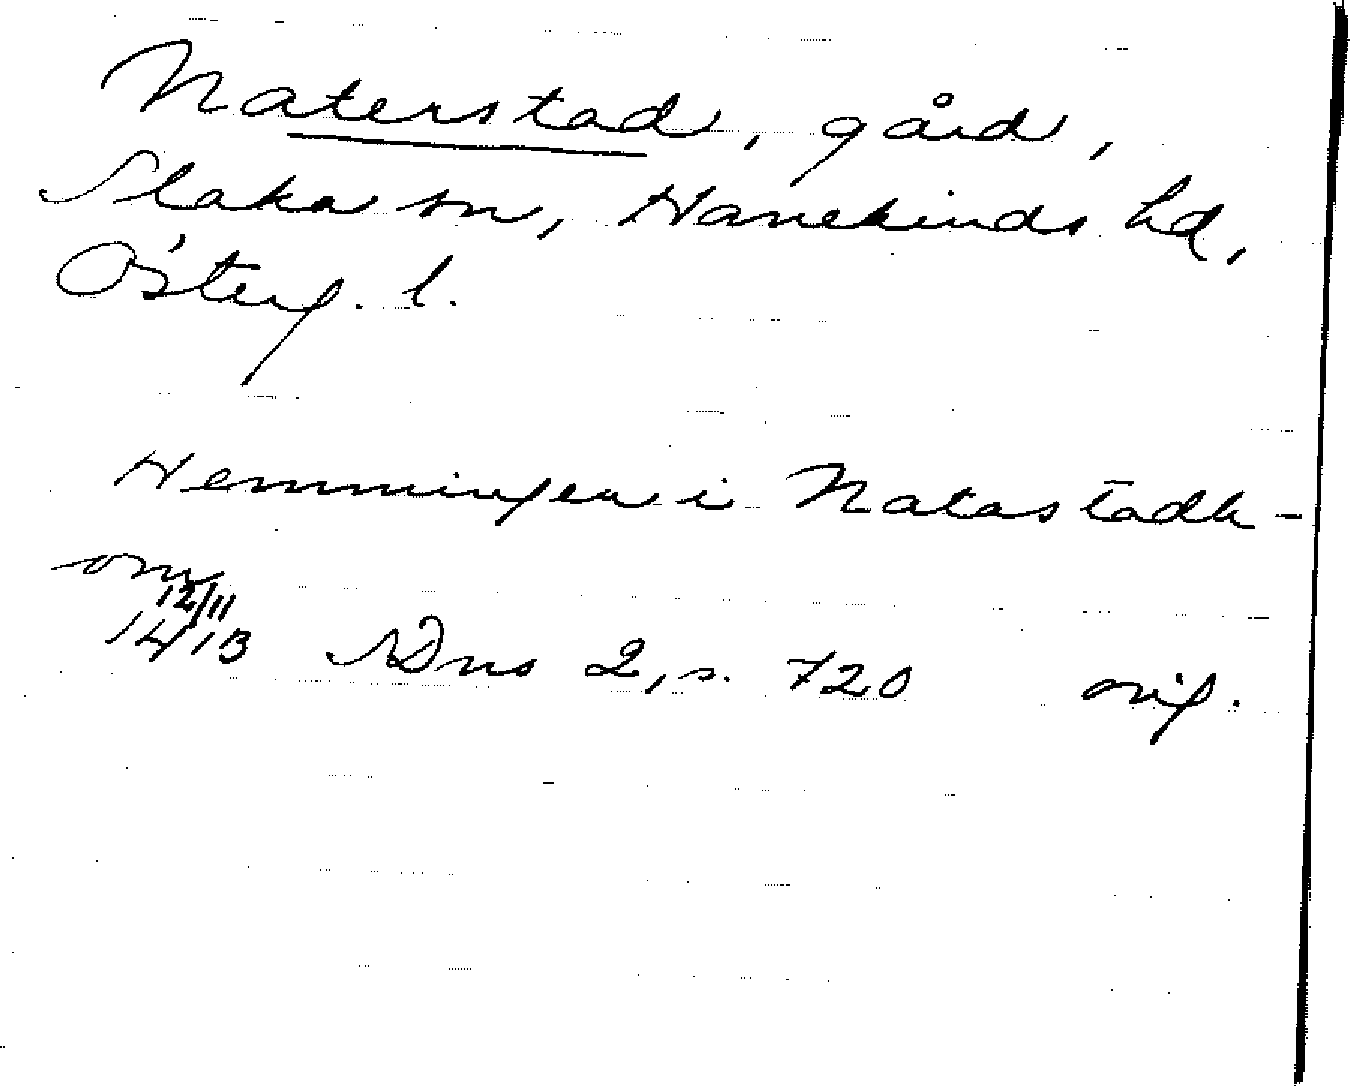 Naterstad, gård,
Slaka sn, Hanekinds hd,
Österg. l.
Hemmingen i Natastadh-
om
12/11
1413 SDns 2, s. 720 orig.